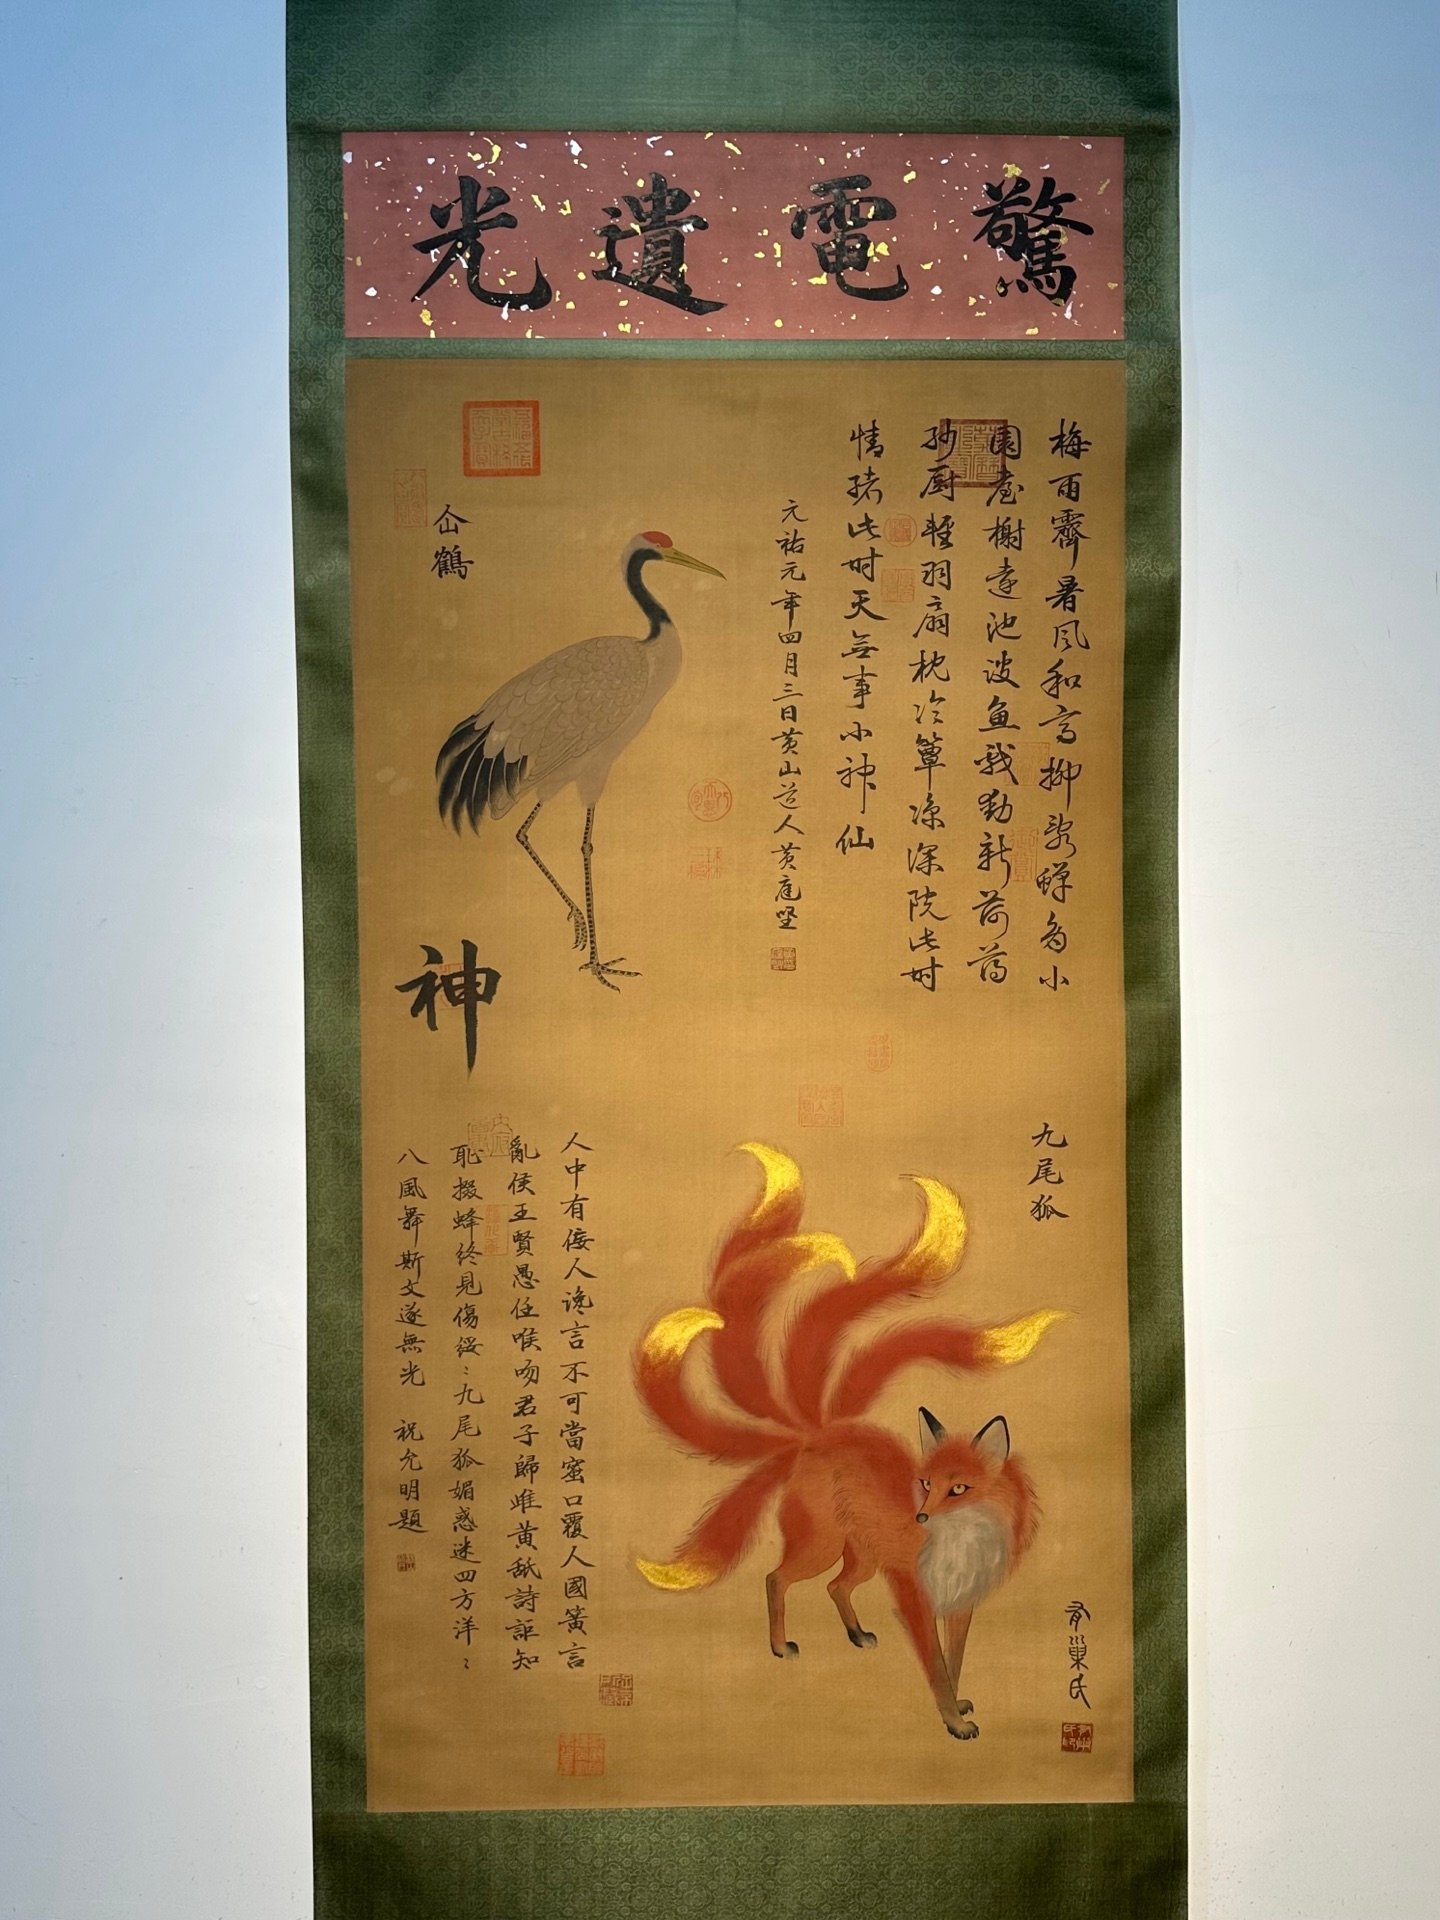 驚電遺光
梅雨霽暑風和高柳亂蟬多小
園臺榭遠池波魚戲動新荷薄
紗厨輕羽扇枕冷簟涼深院此時
情緒此时天無事小神仙
元祐元年四月三日黄山道人黄庭堅
仚鶴
神
九尾狐
人中有佞人讒言不可當蜜口覆人國簧言
亂侯王賢愚任喉吻君子歸雌黄舐詩詎知
恥掇蜂終見傷綏〻九尾狐媚惑迷四方洋〻
八風舞斯文遂無光 祝允明題
有巢氏